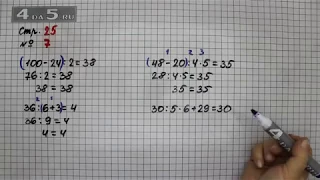 4DA5.RU
Стр. 25
№ 7
(100-24):2=38
76:2=38
38=38
2 1
36:(6+3)=4
36:9=4
4=4
1 2 3
(48-20):4·5=35
28:4·5=35
35=35
30:5·6+29=30